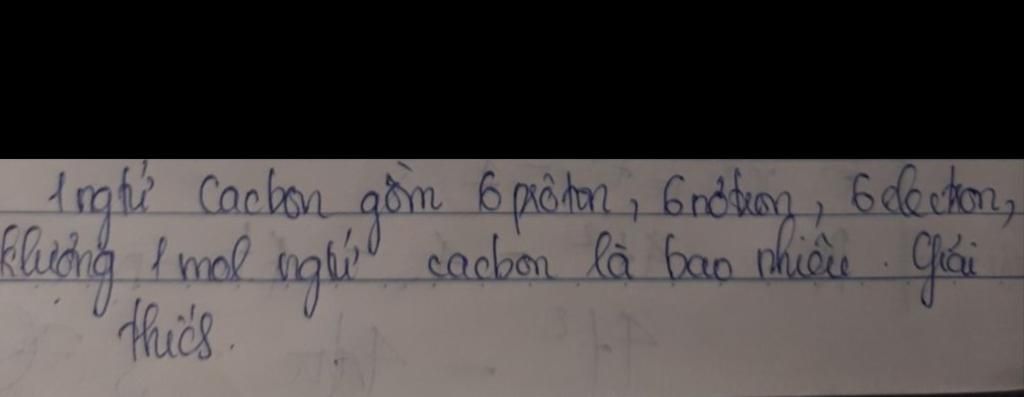 1 ngtử cacbon gồm 6 prôton, 6 nơtron, 6 electron,
klượng 1 mol ngtử cacbon là bao nhiêu. Giải
thích.